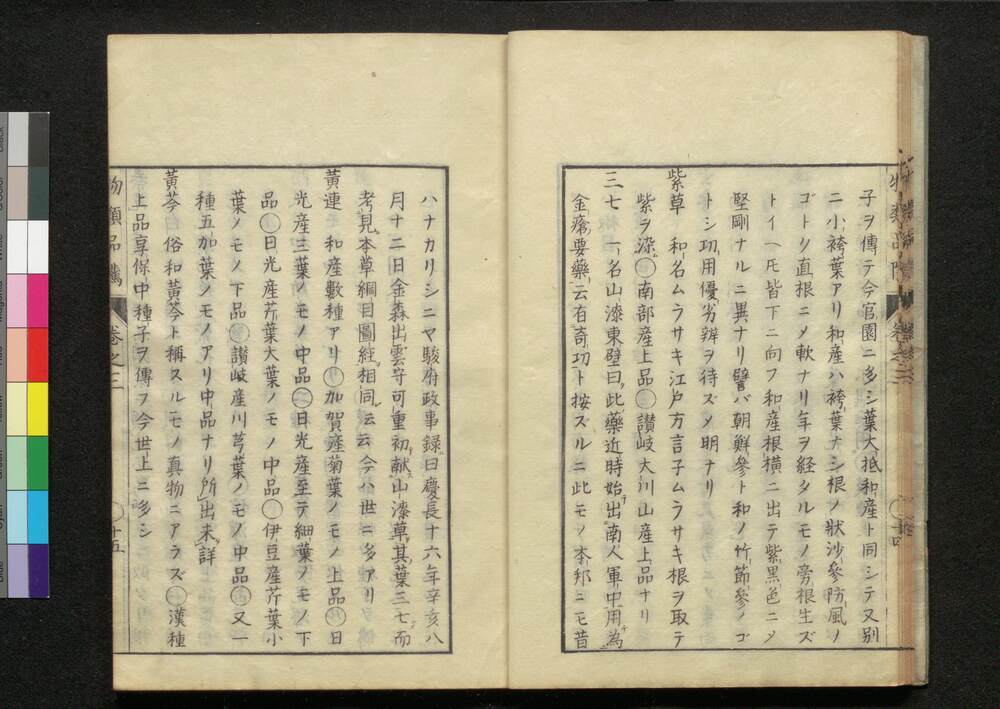 子ヲ傳テ今官園ニ多シ葉大抵和産ト同シテ又別
ニ小袴葉アリ和産ハ袴葉ナシ根ノ狀沙參防風ノ
ゴトク直根ニメ軟ナリ年ヲ経タルモノ旁根生ズ
トイヘ𪜈皆下ニ向フ和産根横ニ出テ紫黒色ニメ
堅剛ナルニ異ナリ譬バ朝鮮參ト和ノ竹節參ノゴ
トシ功用優劣辨ヲ待ズメ明ナリ
紫草 和名ムラサキ江戸方言子ムラサキ根ヲ取テ
紫ヲ染○南部産上品○讃岐大川山産上品ナリ
三七 一名山漆東壁曰此藥近時始出南人軍中用為
金瘡要藥云有奇功ト按ズルニ此モノ本邦ニモ昔
物類品隲 卷之三 十四
ハナカリシニヤ駿府政事録曰慶長十六年辛亥八
月十二日金森出雲守可重初獻山漆草其葉三七而
考見本草綱目圖經相同云云今ハ世ニ多アリ
黄連 和産數種アリ○加賀産菊葉ノモノ上品○日
光産三葉ノモノ中品○日光産至テ細葉ノモノ下
品○日光産芹葉大葉ノモノ中品○伊豆産芹葉小
葉ノモノ下品○讃岐産川芎葉ノモノ中品○又一
種五加葉ノモノアリ中品ナリ所出未詳
黄芩 俗和黄芩ト稱スルモノ真物ニアラズ○漢種
上品享保中種子ヲ傳フ今世上ニ多シ
物類品隲 卷之三 十五